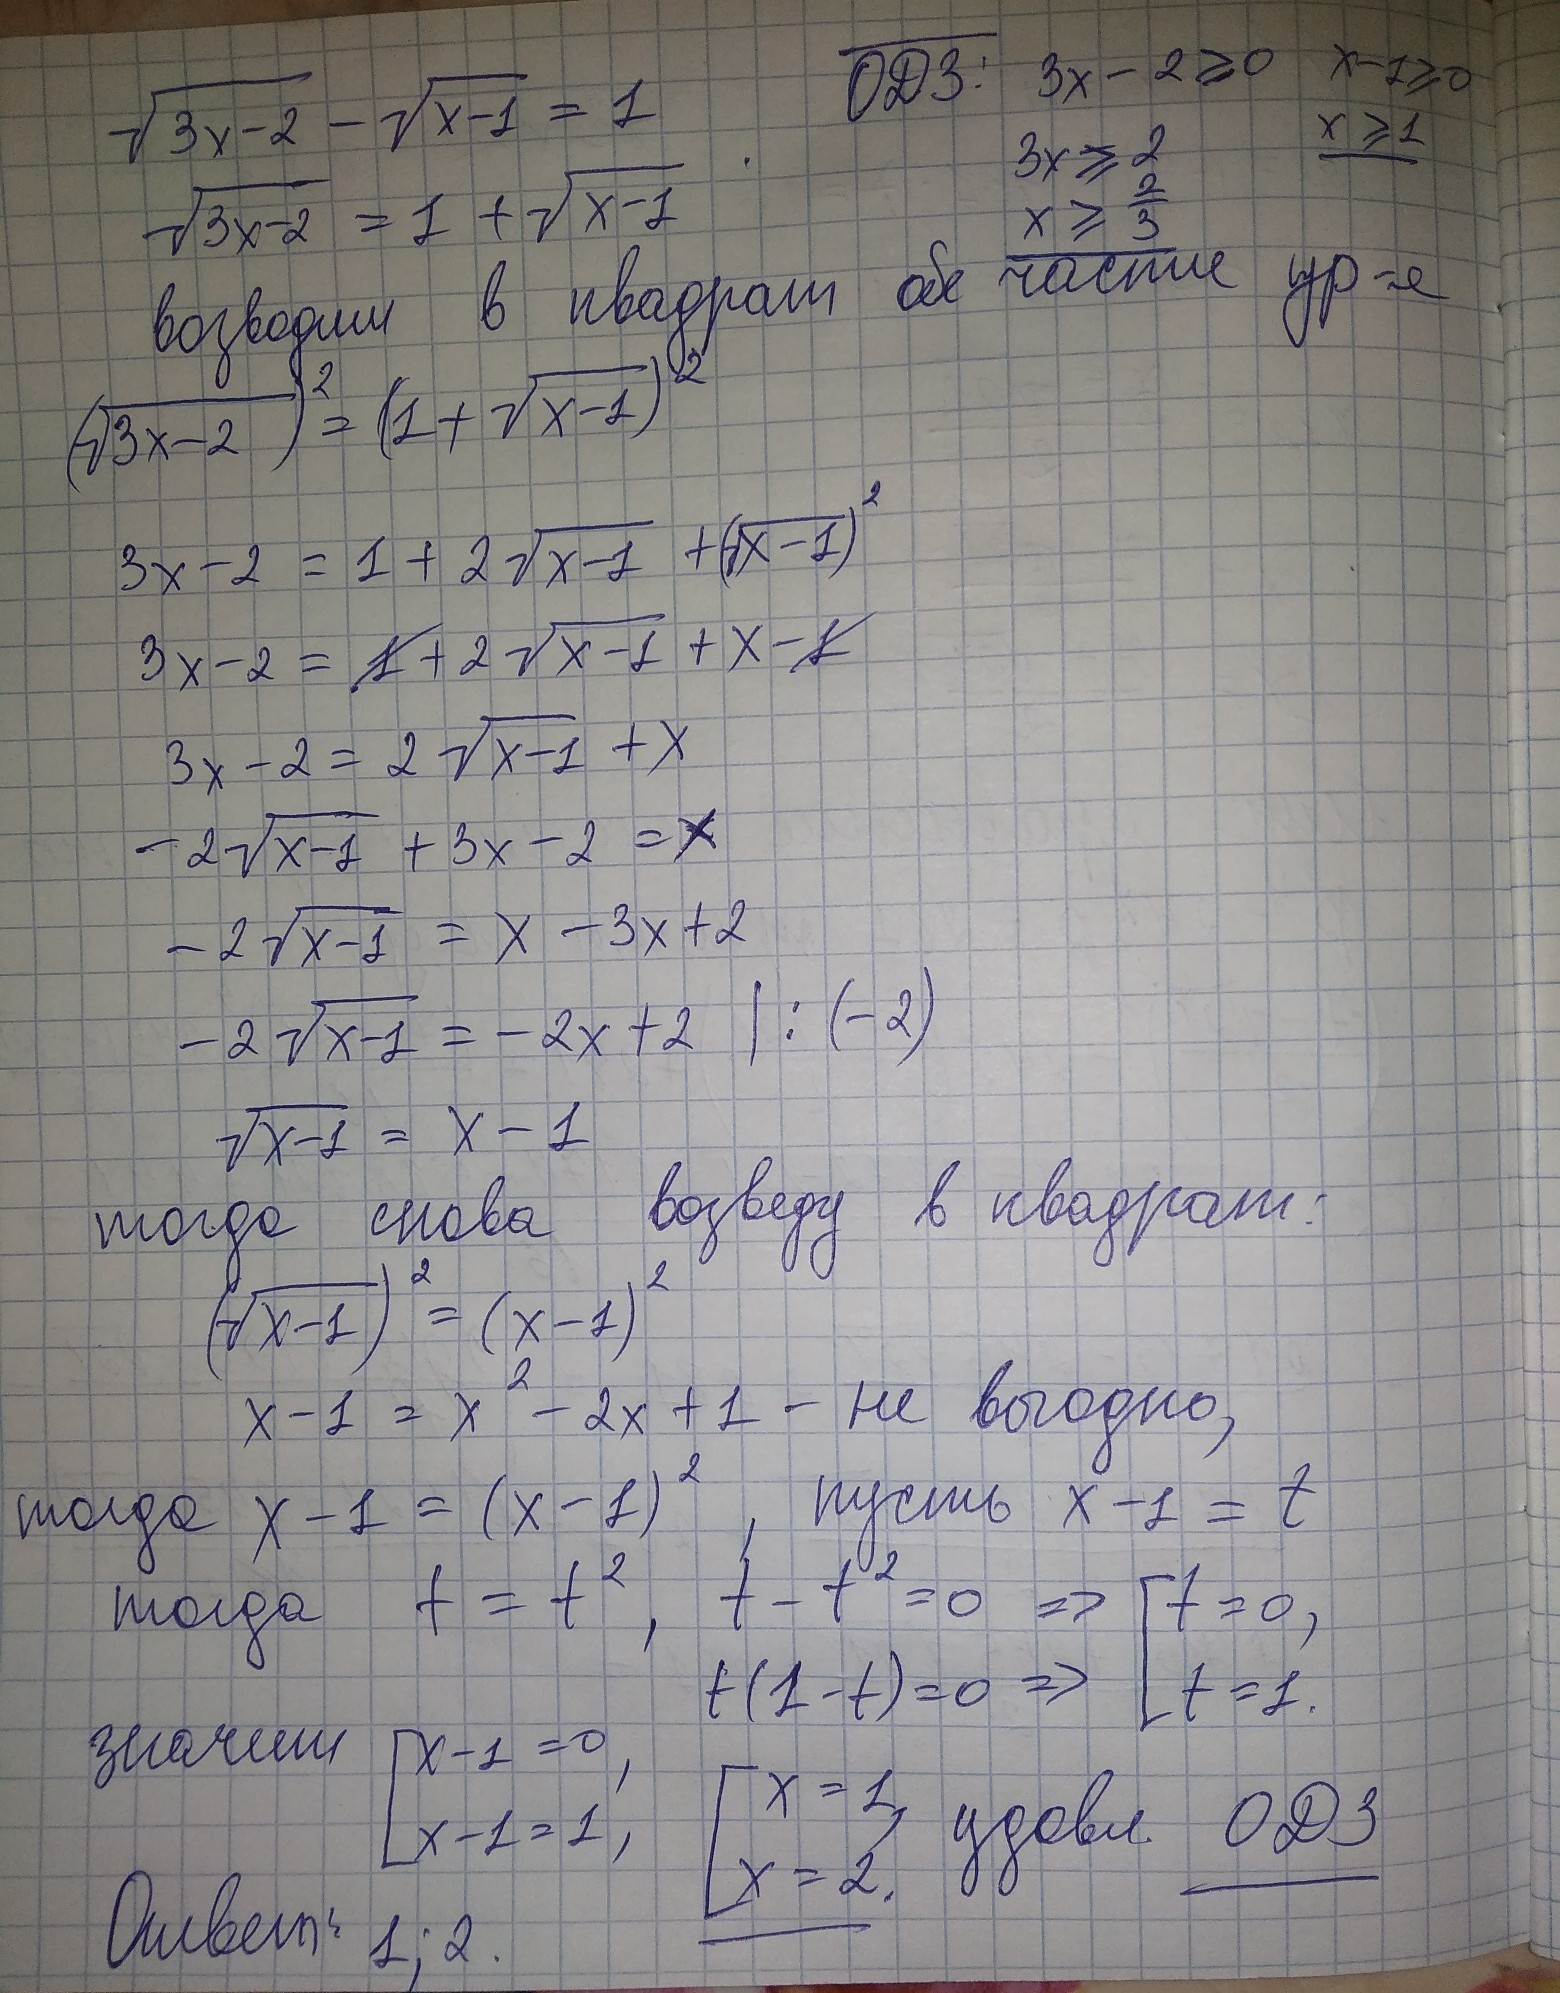 √3x-2 - √x-1 = 1
ОДЗ: 3x-2≥0 x-1≥0
3x≥2 x≥1
x≥2/3
√3x-2 = 1+√x-1
возводим в квадрат обе части ур-я
(√3x-2)² = (1+√x-1)²
3x-2 = 1+2√x-1 +(√x-1)²
3x-2 = 1+2√x-1 +x-1
3x-2 = 2√x-1 +x
-2√x-1 +3x-2 = x
-2√x-1 = x-3x+2
-2√x-1 = -2x+2 |:(-2)
√x-1 = x-1
тогда снова возведу в квадрат:
(√x-1)² = (x-1)²
x-1 = x²-2x+1 - не выгодно,
тогда x-1 = (x-1)², пусть x-1 = t
тогда t = t², t-t²=0 => [t=0,
t(1-t)=0 => t=1.
значит [x-1=0, [x=1,
x-1=1, x=2. удовл. ОДЗ
Ответ: 1; 2.